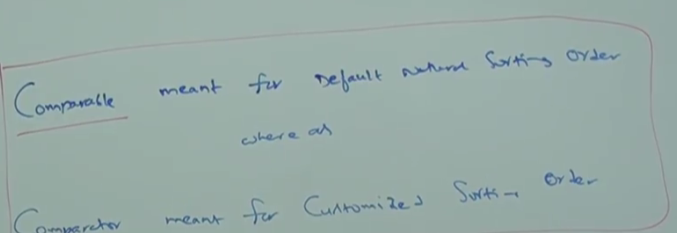 Comparable meant for Default natural Sorting Order
where as
Comparator meant for Customized Sorting Order